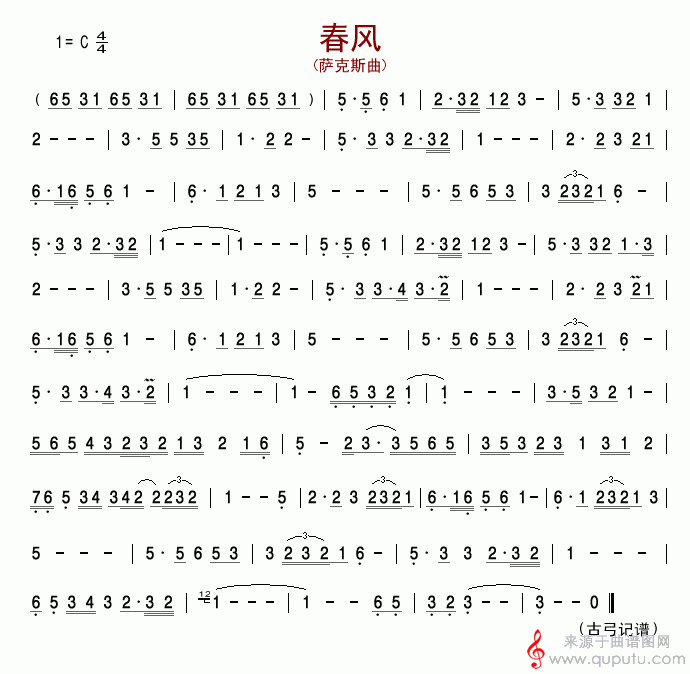 1= C 4/4
春风
(萨克斯曲)
( 65 31 65 31 | 65 31 65 31 ) | 5·5 6 1 | 2·32 12 3 - | 5·3 32 1 |
2 - - - | 3·5 5 35 | 1·2 2 - | 5·3 3 2·32 | 1 - - - | 2·2 3 21 |
6·16 56 1 - | 6·1 21 3 | 5 - - - | 5·5 6 53 | 3 2321 6 - |
5·3 3 2·32 | 1 - - - | 1 - - - | 5·5 6 1 | 2·32 12 3 - | 5·3 32 1·3 |
2 - - - | 3·5 5 35 | 1·2 2 - | 5·3 3·4 3·2 | 1 - - - | 2·2 3 21 |
6·16 56 1 - | 6·1 21 3 | 5 - - - | 5·5 6 53 | 3 2321 6 - |
5·3 3·4 3·2 | 1 - - - | 1 - 6532 1 | 1 - - - | 3·532 1 - |
565 43 232 13 2 16 | 5 - 23·3565 | 35323 1 31 2 |
76 5 34 342 2232 | 1 - - 5 | 2·2 3 2321 | 6·16 56 1 - | 6·1 2321 3 |
5 - - - | 5·5 6 53 | 3 232 1 6 - | 5·3 3 2·32 | 1 - - - |
6 5 34 3 2·32 | 12 1 - - - | 1 - - 65 | 3·2 3 - - | 3 - - 0 ‖
(古弓记谱)
来源于曲谱图网
www.quputu.com